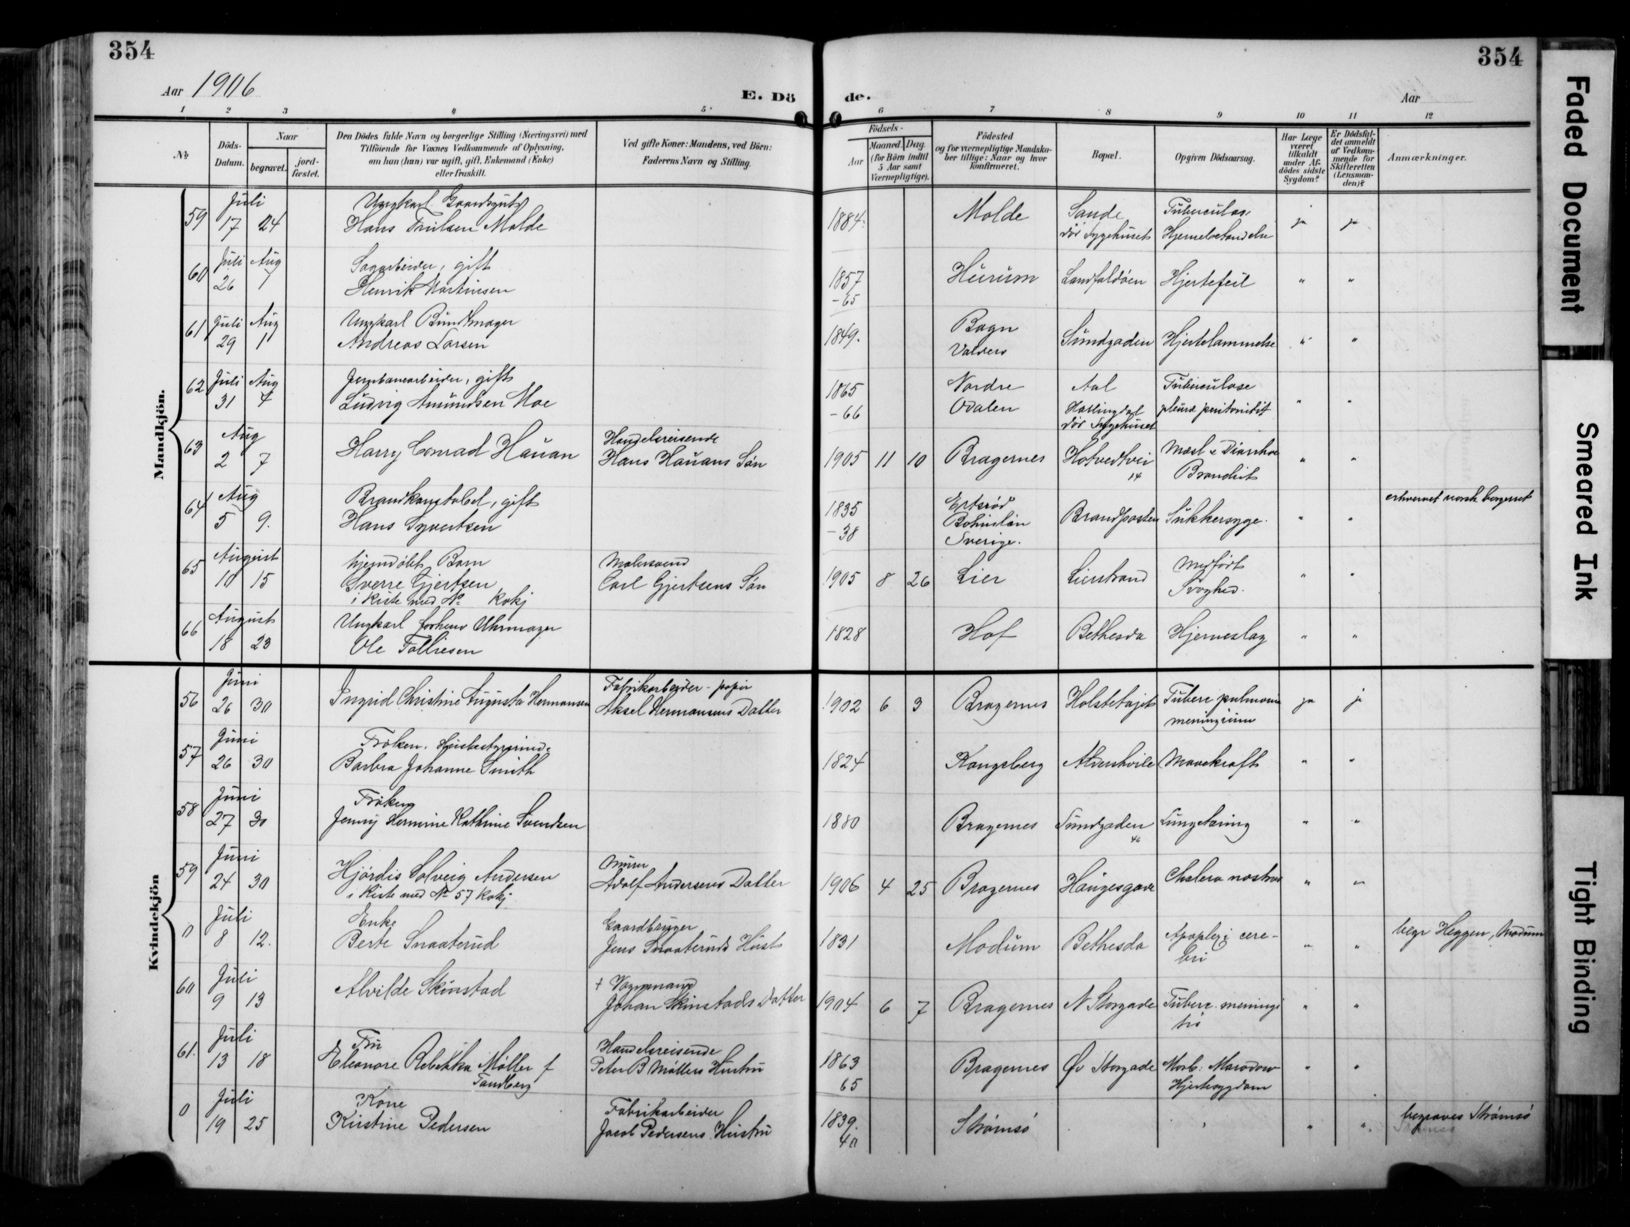 354
354
Aar 1906
E. Dö
de.
Aar
1 2 3 4 5 6 7 8 9 10 11 12
No
Döds-
Datum.
Naar
begravet.
jord-
fæstet.
Den Dödes fulde Navn og borgerlige Stilling (Næringsvei) med
Tilföiende for Voxnes Vedkommende af Oplysning,
om han (hun) var ugift, gift, Enkemand (Enke)
eller fraskilt.
Ved gifte Koner: Mandens, ved Börn:
Faderens Navn og Stilling.
Födsels-
Aar
Maaned. Dag.
(for Börn indtil
5 Aar samt
Værnepligtige).
Födested
og for værnepligtige Mandska-
ber tillige: Naar og hvor
konfirmeret.
Bopæl.
Opgiven Dödsaarsag.
Har Læge
været
tilkaldt
under Af-
dödes sidste
Sygdom?
Er Dödsfal-
det anmeldt
af Vedkom-
mende for
Skifteretten
(Lensman-
den)?
Anmærkninger.
Mandkjön.
59 Juli 17 24 Ungkarl Gaardsgut
Hans Trulsen Molde 1884. Molde Sande
dör Sygehuset Tuberculøs
Hjernebetændelse ja ja
60 Juli 26 Aug 1 Sagarbeider, gift
Henrik Martinsen 1857
-65 Hurum Landfaldöen Hjertefeil " "
61 Juli 29 Aug 1 Ungkarl Bundtmager
Andreas Larsen 1849. Bagn
Valders Sundgaden Hjertelammelse " "
62 Juli 31 Aug 4 Jernbanearbeider, gift
Ludvig Amundsen Moe 1865
-66 Nordre
Odalen Aal
Hallingdal
dör Sygehuset Tuberculose
pleura peritonitit " "
63 Aug 2 7 Harry Conrad Hauan Handelsreisende
Hans Hauans Sön 1905 11 10 Bragernes Hotvedtvei
14 Mæsl. & Diarrhoe
Bronchit " "
64 Aug 5 9. Brandkonstabel, gift
Hans Syvertsen 1835
-38
Bohuslän
Sverige. Brandposten Sukkersyge. " " erhvervet norsk borgerret
65 August 10 15 hjemdöbt Barn
Sverre Gjertsen
i kiste med No kokj Malersvend
Carl Gjertsens Sön 1905 8 26 Lier Lierstrand Medfödt
Svaghed. " "
66 August 18 23 Ungkarl forhenv Uhrmager
Ole Tollresen 1828 Hof Bethesda Hjerneslag " "
Kvindekjön
56 Juni 26 30 Ingrid Christine Augusta Hermansen Fabrikarbeider - papir
Aksel Hermansens Datter 1902 6 3 Bragernes Tuberc pulmonum
meningium ja ja
57 Juni 26 30 Fröken.
Barbra Johanne Smith 1824 Kongsberg Alvershvile Mavekræft " "
58 Juni 27 30 Fröken
Jenny Hermine Kathrine Svendsen 1880 Bragernes Sundgaden Lungetæring " "
59 Juni 24 30 Hjördis Solveig Andersen
i kiste med No 57 kokj. Murer
Adolf Andersens Datter 1906 4 25 Bragernes Haugesgade Cholera nostras " "
0 Juli 8 12. Enke
Berte Snaaterud Gaardbruger
Jens Snaateruds Hust 1831 Modum Bethesda Apoplexi cere-
bri " " begr Heggen, Modum
60 Juli 9 13 Alvilde Skinstad † Vognmand
Johan Skinstads Datter 1904 6 7 Bragernes N. Storgade Tuberc. meningi
tis " "
61. Juli 13 18 Fru
Eleonore Rebekka Møller f
Sandberg Handelsreisende
Peter B Møllers Hustru 1863
65 Bragernes Øv Storgade Morb. Marodow
Hjertesygdom " "
0 Juli 19 25 Kone
Kirstine Pedersen Fabrikarbeider
Jacob Pedersens Hustru 1839.
40 Strømsø " " begraves Strømsö
Faded Document
Smeared Ink
Tight Binding